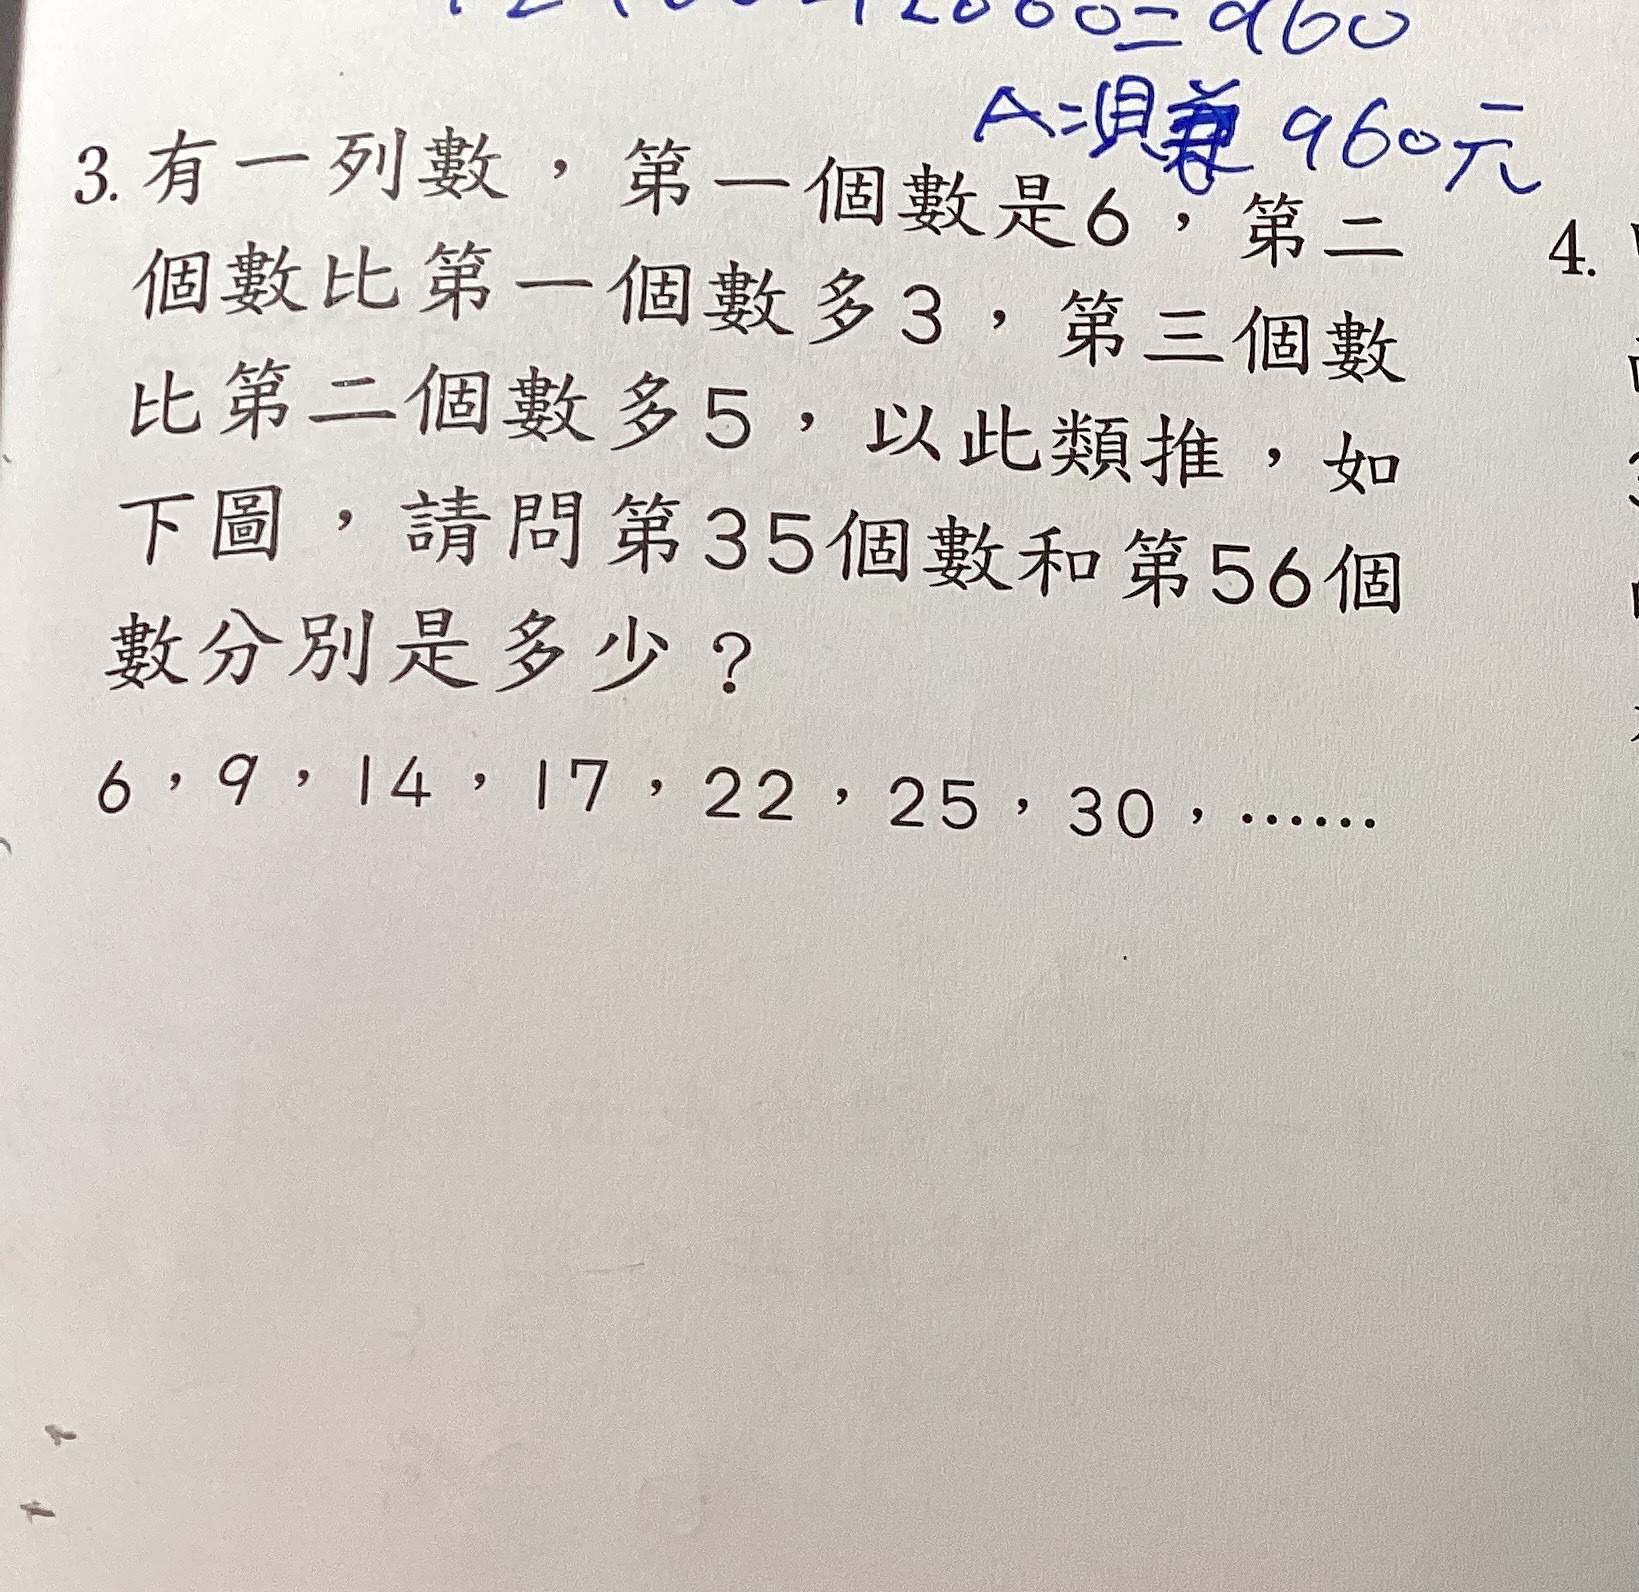 =960
A=損 960元
3. 有一列數，第一個數是6，第二
個數比第一個數多3，第三個數
比第二個數多5，以此類推，如
下圖，請問第35個數和第56個
數分別是多少？
6，9，14，17，22，25，30，……
4.